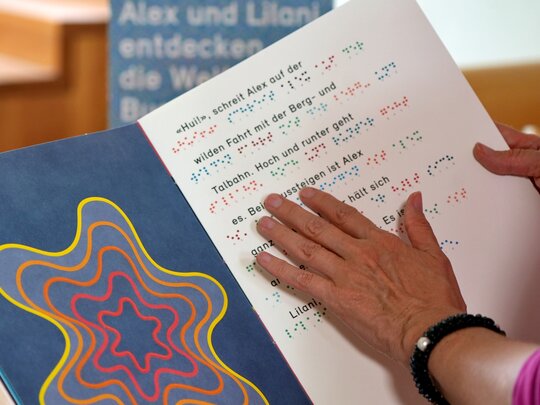 Alex und Lilani
entdecken
die Welt
«Hui!», schreit Alex auf der
wilden Fahrt mit der Berg- und
Talbahn. Hoch und runter geht
es. Beim Aussteigen ist Alex
ganz
hält sich
Es ist
Lilani,